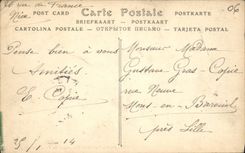 26 rue de France
Nice
06
Carte Postale
POST CARD
POSTKARTE
BRIEFKAART — POSTKAART
CARTOLINA POSTALE — ОТКРЫТОЕ ПИСЬМО — TARJETA POSTAL
Pense bien à vous
Amitiés
E. Copie
25/1-14
Monsieur Madame
Gustave Gras-Copie
rue Neuve
Mons-en-Baroeul
près Lille